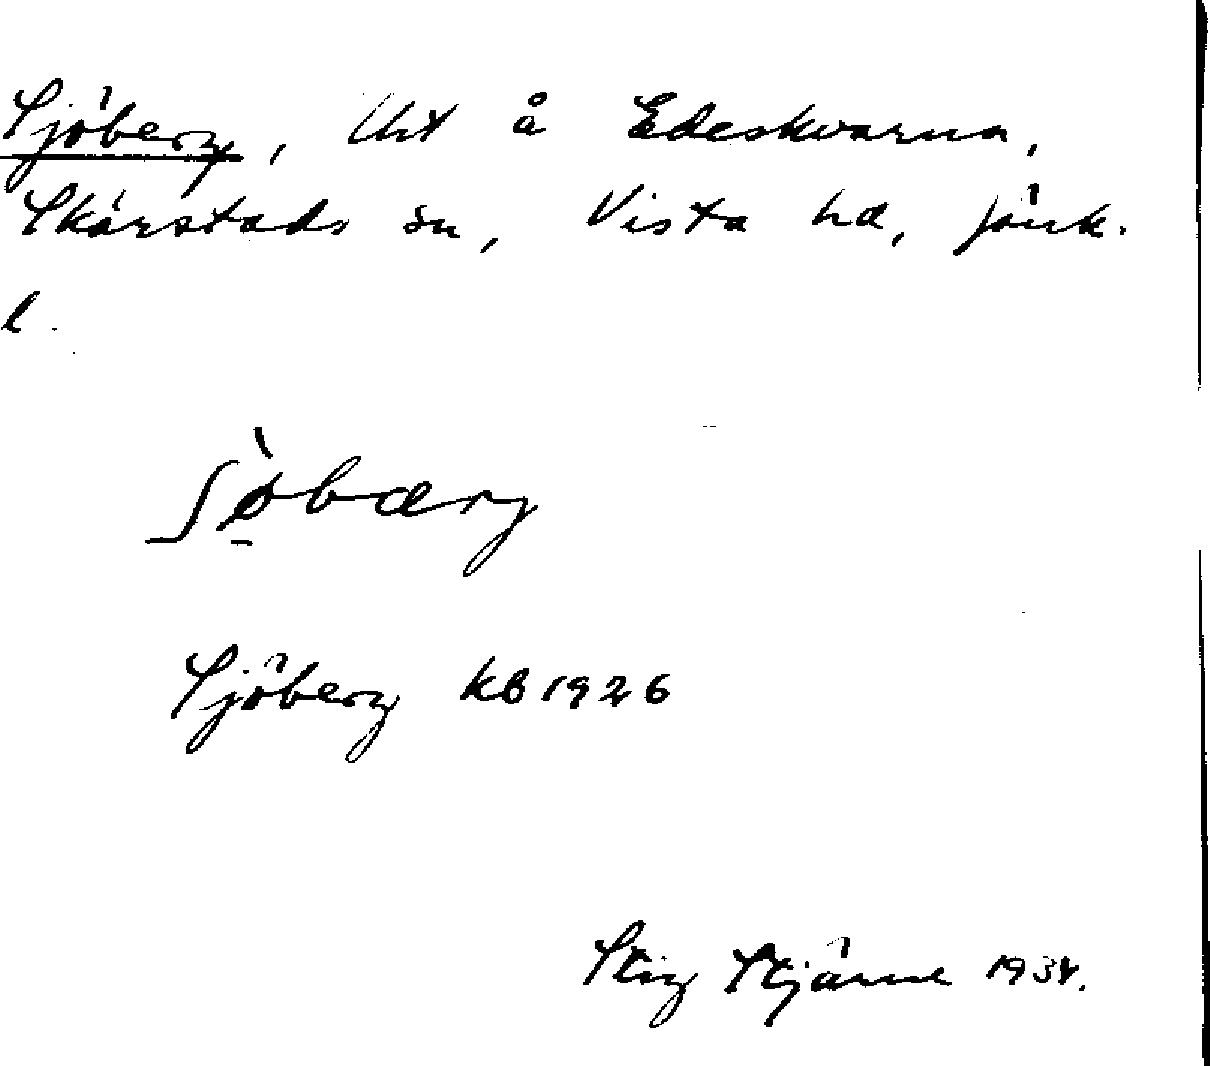 Sjöberg, Lht å Edeskvarna,
Skärstads sn, Vista hd, Jönk.
l.
Sjöberg KB 1926
Stig Stjärne 1934.